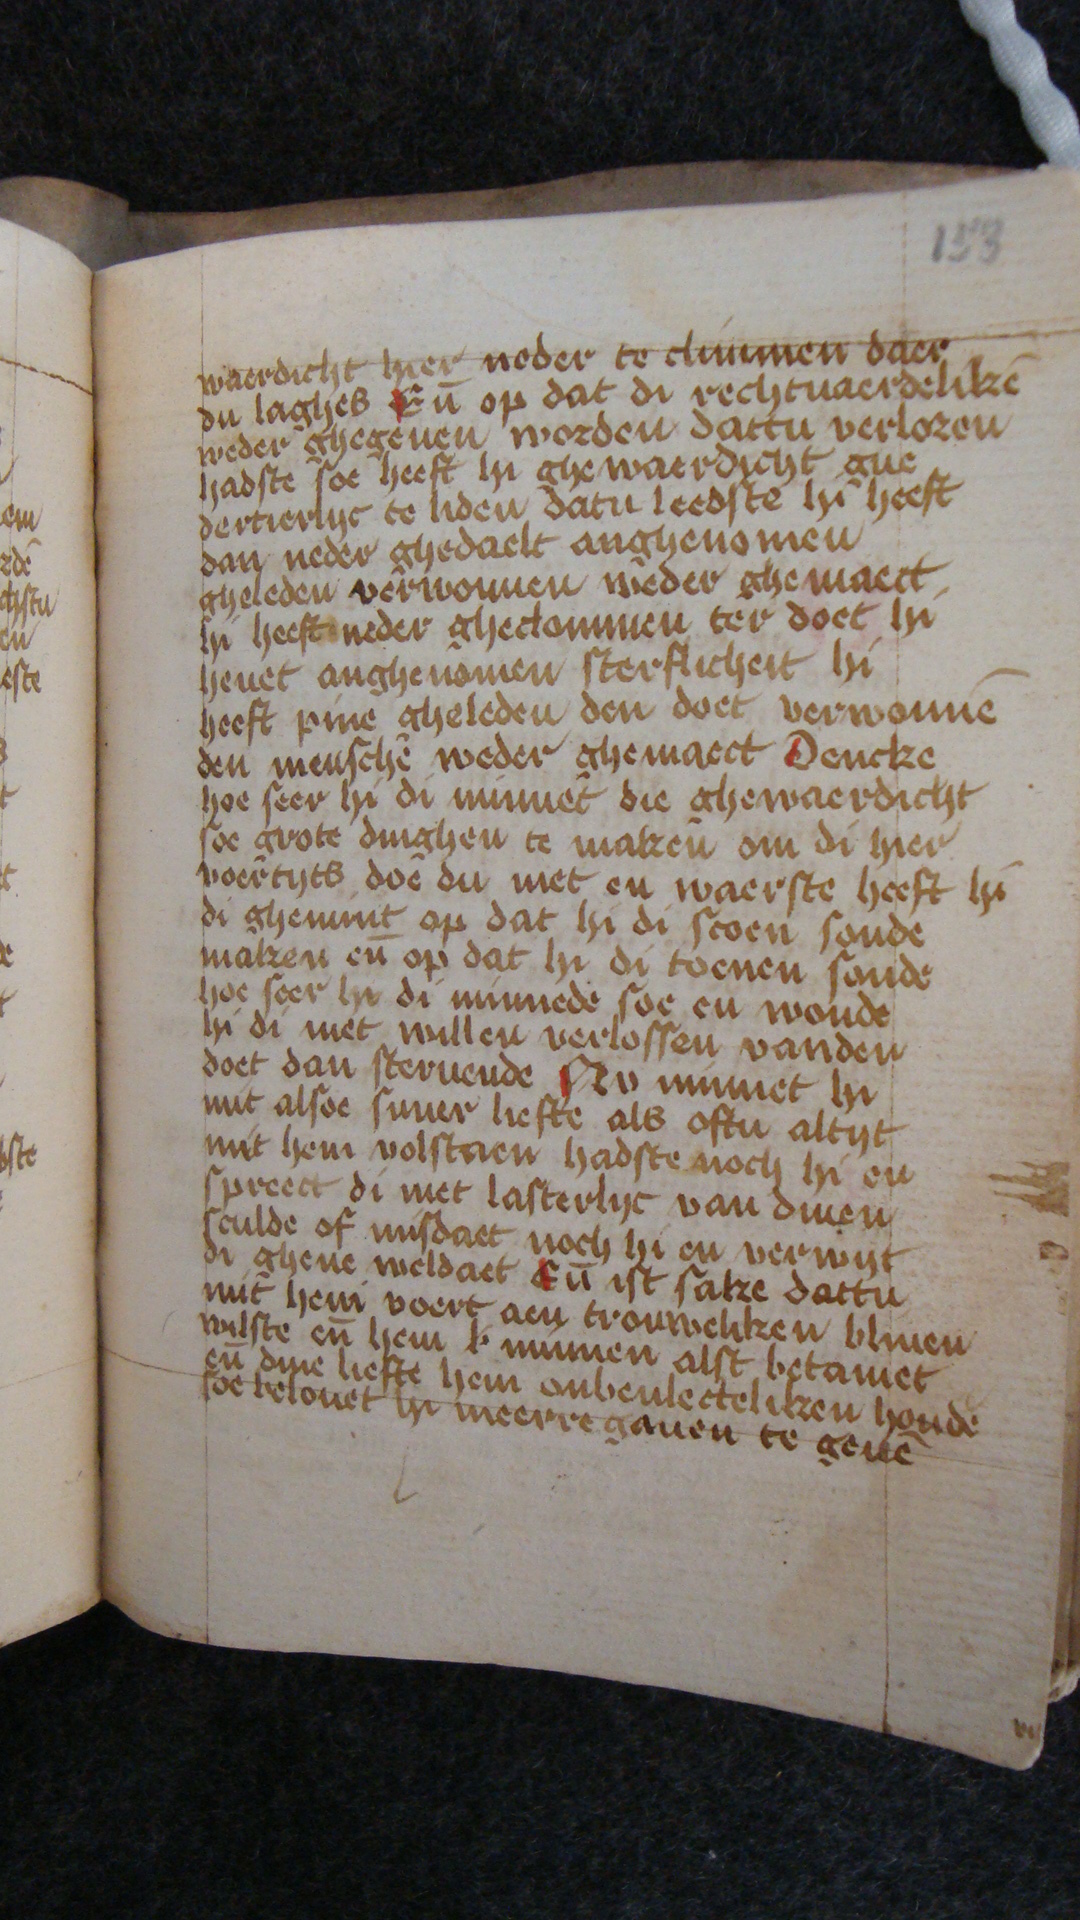 153
waerdicht hier neder te climmen daer
du laghes Eñ op dat di rechtuaerdelikē
weder ghegeuen worden dattu verloren
hadste soe heeft hi ghewaerdicht gue
dertierlijc te liden datu leedste hi heeft
dan neder ghedaelt anghenomen
gheleden verwonnen weder ghemaect
hi heeft neder gheclommen ter doet hi
heuet anghenomen sterflicheit hi
heeft pine gheleden den doet verwonnē
den menschē weder ghemaect Dencke
hoe seer hi di minnet die ghewaerdicht
soe grote dinghen te maken om di hier
voertyts doē du niet en waerste heeft hi
di ghemint op dat hi di scoen soude
maken eñ op dat hi di toenen soude
hoe seer hi di minnede soe en woude
hi di niet willen verlossen vanden
doet dan steruende Nv minnet hi
mit alsoe suuer liefte als oftu altijt
mit hem volstaen hadste noch hi en
spreect di niet lasterlijc van dinen
sculde of misdaet noch hi en verwijt
di ghene weldaet Eñ ist sake dattu
mit hem voert aen trouweliken bliuen
wilste eñ hem minnen alst betamet
eñ dine liefte hem onbeulecteliken houdē
soe belouet hi meerre gauen te geuē